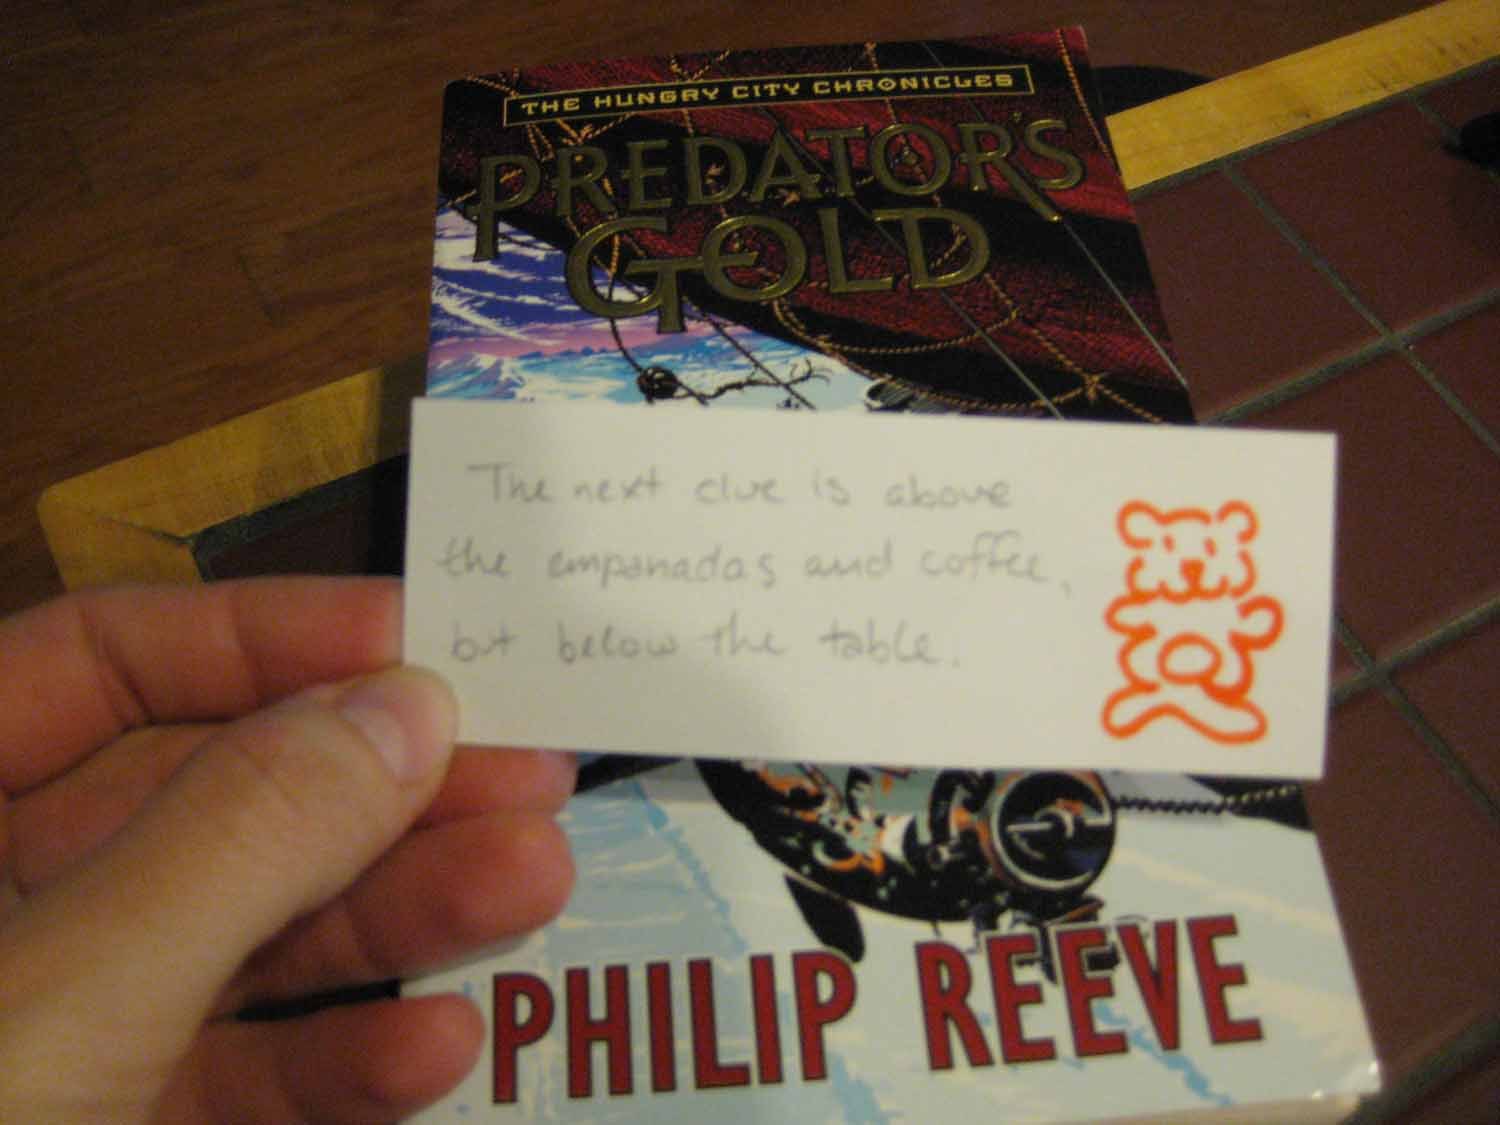 THE HUNGRY CITY CHRONICLES
PREDATOR'S
GOLD
The next clue is above
the empanadas and coffee,
but below the table.
PHILIP REEVE